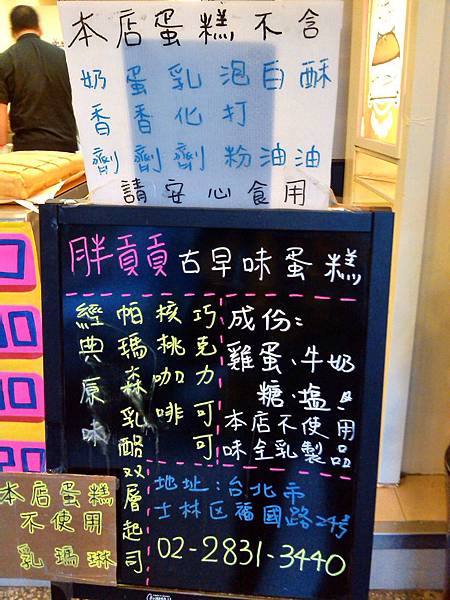 本店蛋糕不含
奶香劑
蛋香劑
乳化劑
泡打粉
白油
酥油
請安心食用
胖貢貢古早味蛋糕
經典原味
帕瑪森乳酪双層起司
核桃咖啡
巧克力可可
成份:
雞蛋、牛奶
糖、塩!
本店不使用
味全乳製品
地址:台北市
士林区福國路24号
02-2831-3440
本店蛋糕
不使用
乳瑪琳